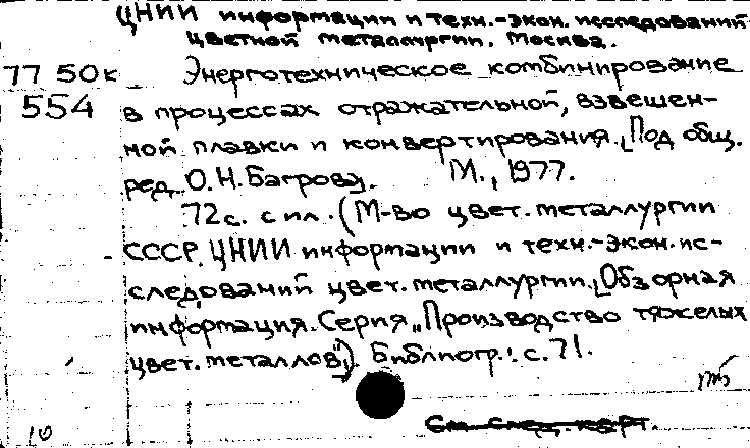 ЦНИИ информации и техн.-экон. исследований
цветной металлургии. Москва.
77 50к Энерготехническое комбинирование
554 в процессах отражательной, взвешен-
ной плавки и конвертирования. [Под общ.
ред. О.Н. Багрова]. М., 1977.
72 с. с ил. (М-во цвет. металлургии
СССР. ЦНИИ информации и техн.-экон. ис-
следований цвет. металлургии. [Обзорная
информация. Серия „Производство тяжелых
цвет. металлов"]). Библиогр.: с. 71.
См. след. карт.
10